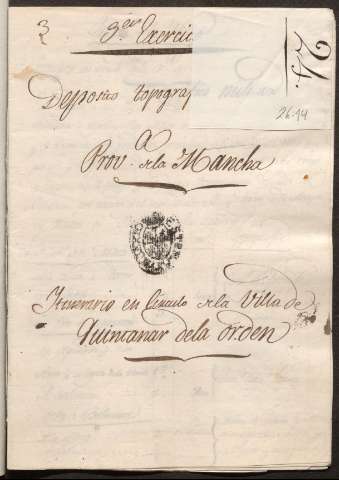 3
3.er Exercic
26-14
Deposito topograf
Prov.a de la Mancha
Itinerario en Circulo de la Villa de
Quintanar dela orden